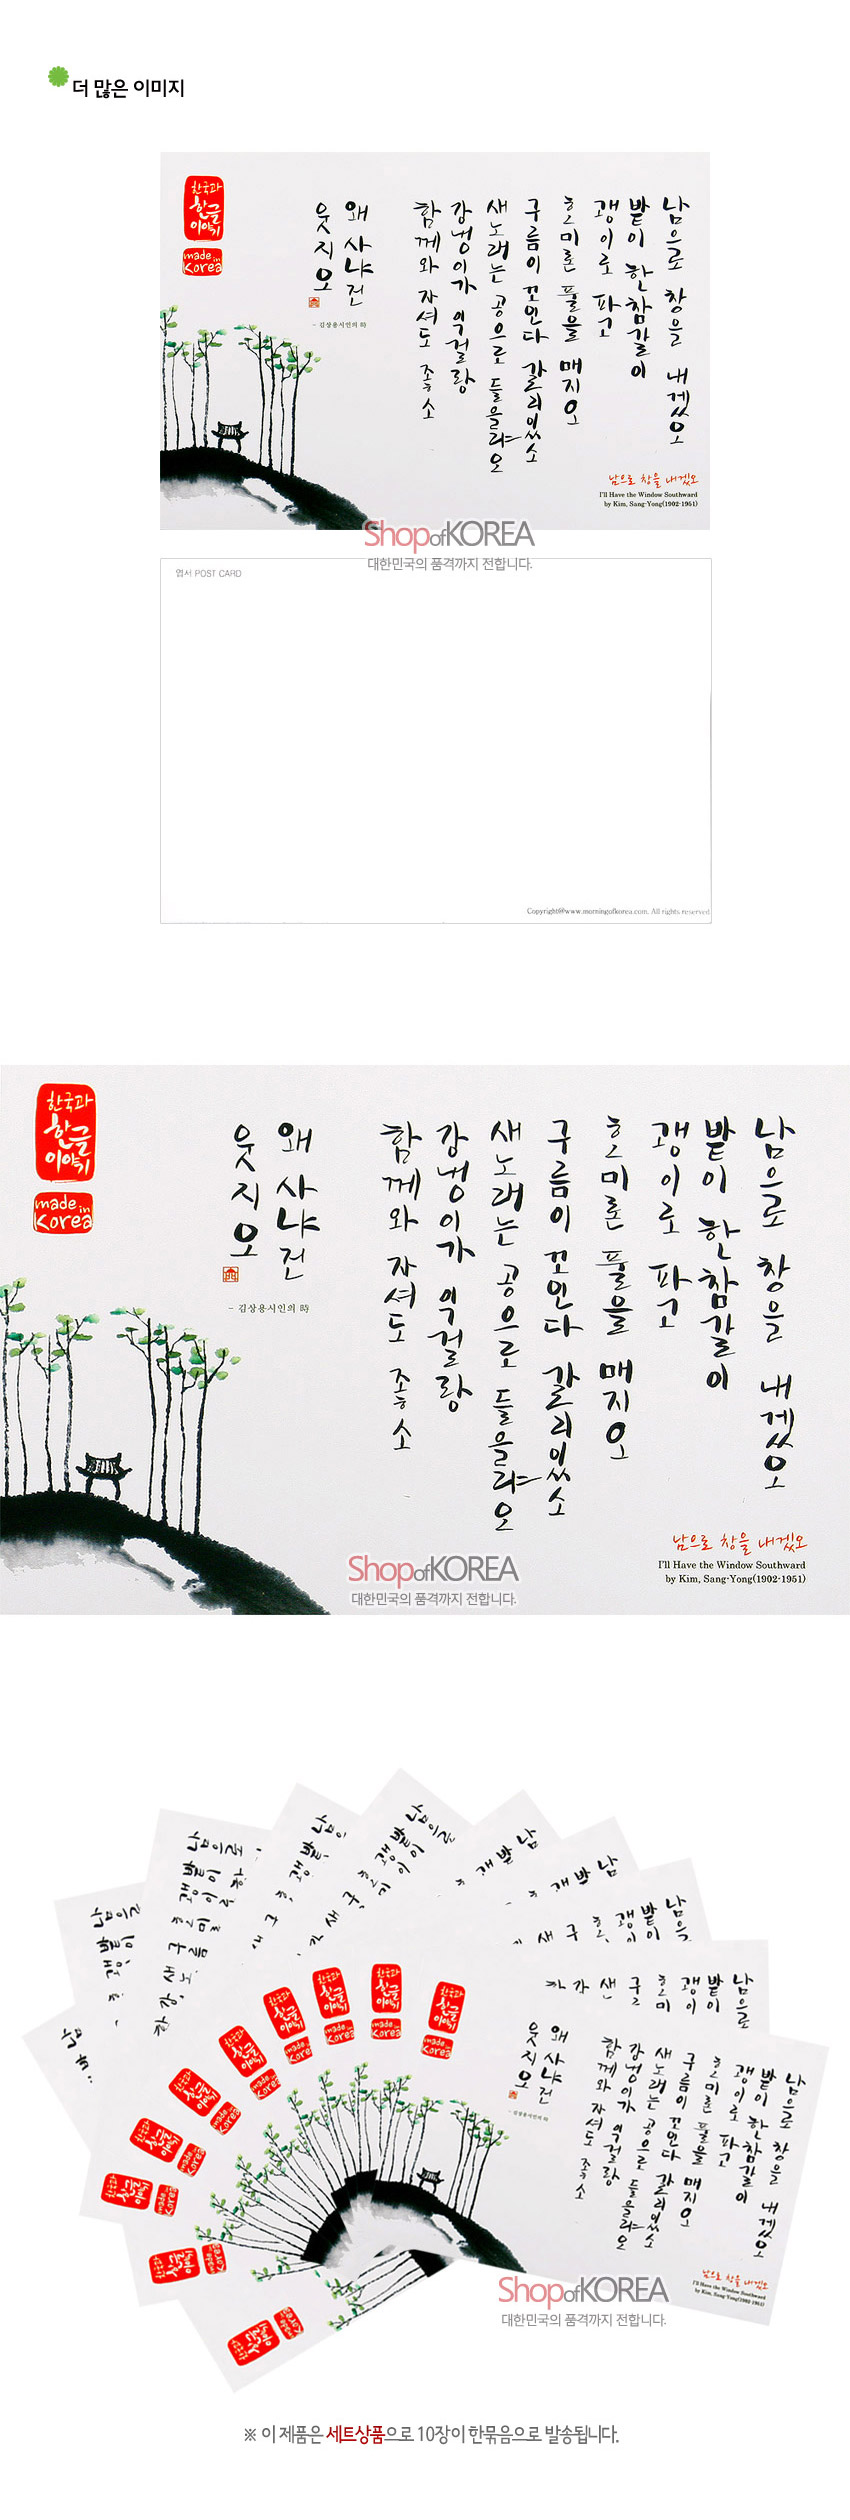 더 많은 이미지
한국과
한글
이야기
made in
Korea
남으로 창을 내겠오
밭이 한참갈이
괭이로 파고
호미론 풀을 매지오
구름이 꼬인다 갈리있소
새노래는 공으로 들을랴오
강냉이가 익걸랑
함께와 자셔도 좋소
왜 사냐건
웃지오
- 김상용시인의 時
남으로 창을 내겠오
I'll Have the Window Southward
by Kim, Sang-Yong(1902-1951)
ShopofKOREA
대한민국의 품격까지 전합니다.
엽서 POST CARD
Copyright@www.morningofkorea.com. All rights reserved
한국과
한글
이야기
made in
Korea
남으로 창을 내겠오
밭이 한참갈이
괭이로 파고
호미론 풀을 매지오
구름이 꼬인다 갈리있소
새노래는 공으로 들을랴오
강냉이가 익걸랑
함께와 자셔도 좋소
왜 사냐건
웃지오
- 김상용시인의 時
남으로 창을 내겠오
I'll Have the Window Southward
by Kim, Sang-Yong(1902-1951)
ShopofKOREA
대한민국의 품격까지 전합니다.
한국과
한글
이야기
made in
Korea
남으로 창을 내겠오
밭이 한참갈이
괭이로 파고
호미론 풀을 매지오
구름이 꼬인다 갈리있소
새노래는 공으로 들을랴오
강냉이가 익걸랑
함께와 자셔도 좋소
왜 사냐건
웃지오
- 김상용시인의 時
남으로 창을 내겠오
I'll Have the Window Southward
by Kim, Sang-Yong(1902-1951)
ShopofKOREA
대한민국의 품격까지 전합니다.
※ 이 제품은 세트상품으로 10장이 한묶음으로 발송됩니다.